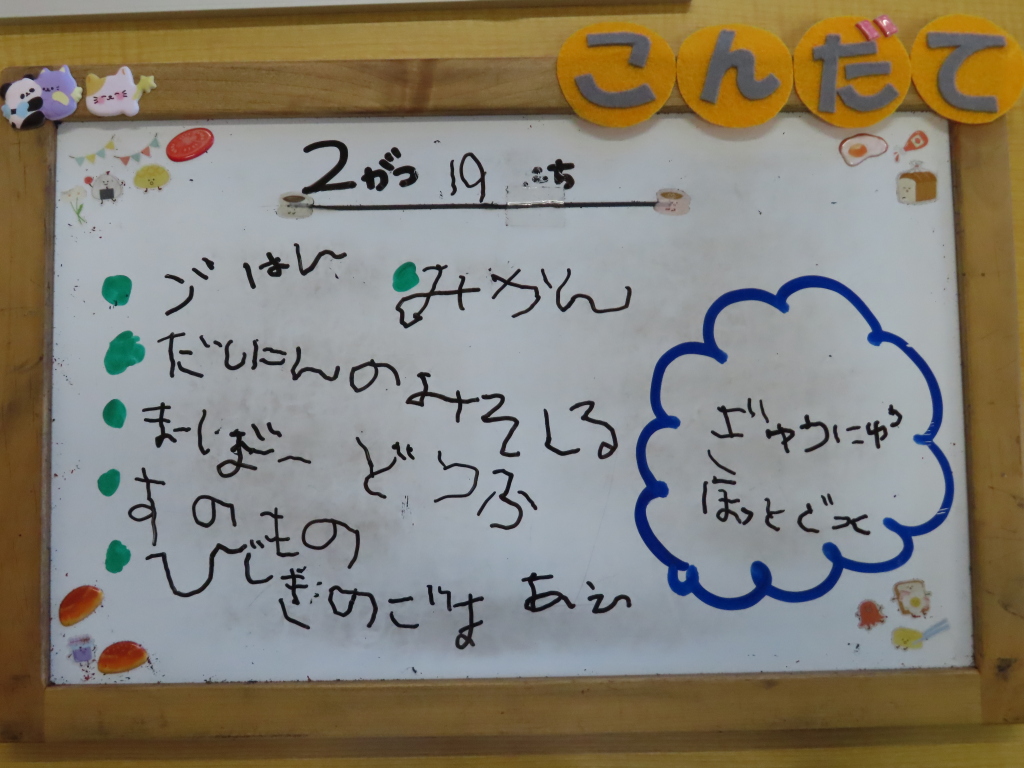 こんだて
2がつ 19 にち
ごはん
みかん
だいこんの みそしる
まーぼー どうふ
すのもの
ひじきのごまあえ
ぎゅうにゅう
ほっとどっく